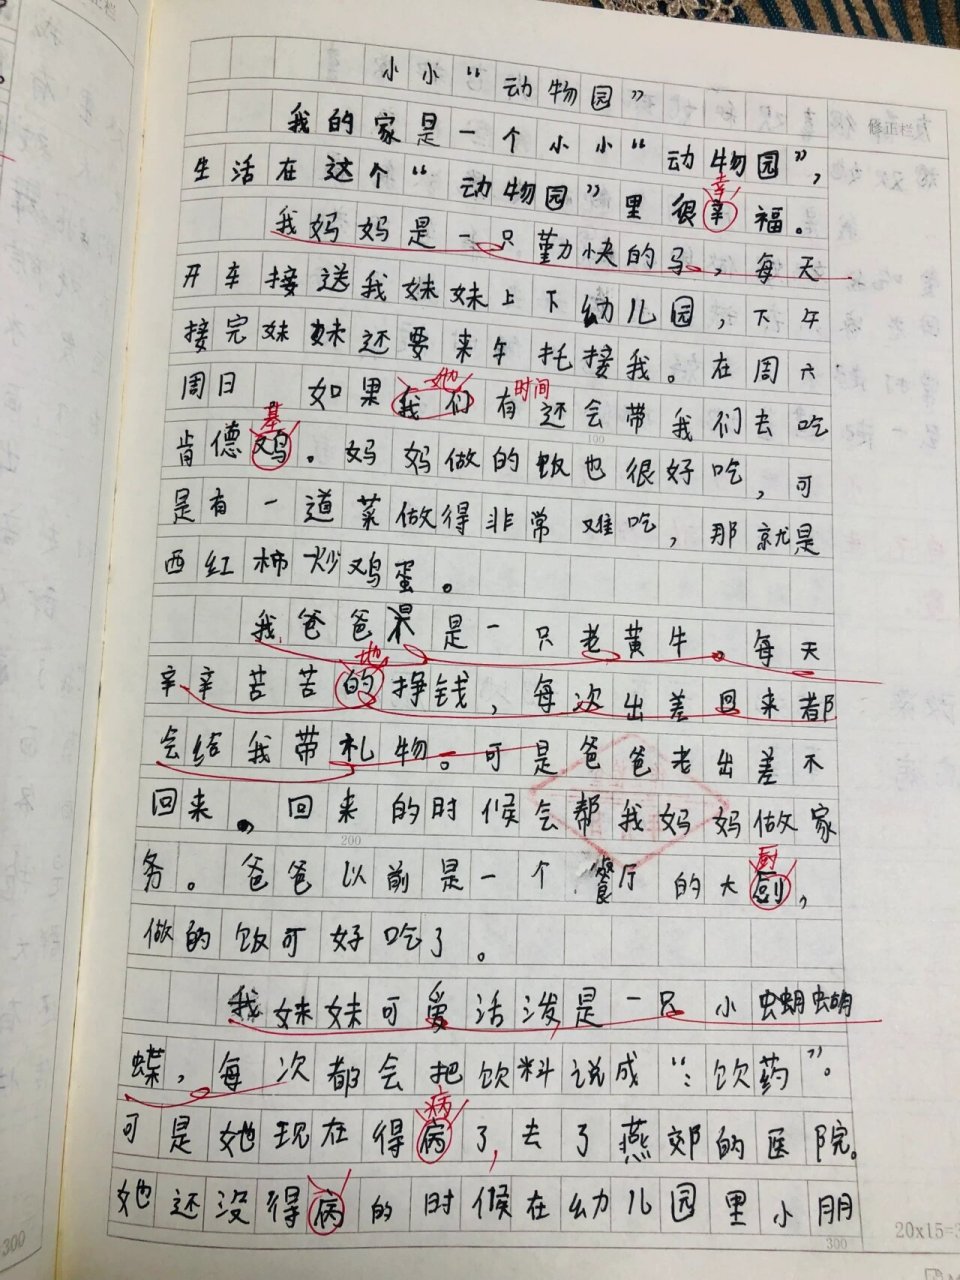 小小“动物园”
我的家是一个小小“动物园”，
修正栏
生活在这个“动物园”里很幸福。
幸
我妈妈是一只勤快的马，每天
开车接送我妹妹上下幼儿园，下午
接完妹妹还要来午托接我。在周六
周日 如果我们有还会带我们去吃
她 时间
肯德鸡。妈妈做的饭也很好吃，可
基
100
是有一道菜做得非常难吃，那就是
西红柿炒鸡蛋。
我爸爸 是一只老黄牛。每天
辛辛苦苦的挣钱，每次出差回来都
地
会给我带礼物。可是爸爸老出差不
回来。回来的时候会帮我妈妈做家
200
务。爸爸以前是一个餐厅的大，
厨
做的饭可好吃了。
我妹妹可爱活泼是一只小蝴蝴
蝶，每次都会把饮料说成“：饮药”。
可是她现在得病了，去了燕郊的医院。
病
她还没得病的时候在幼儿园里小朋
300
20x15=3
300